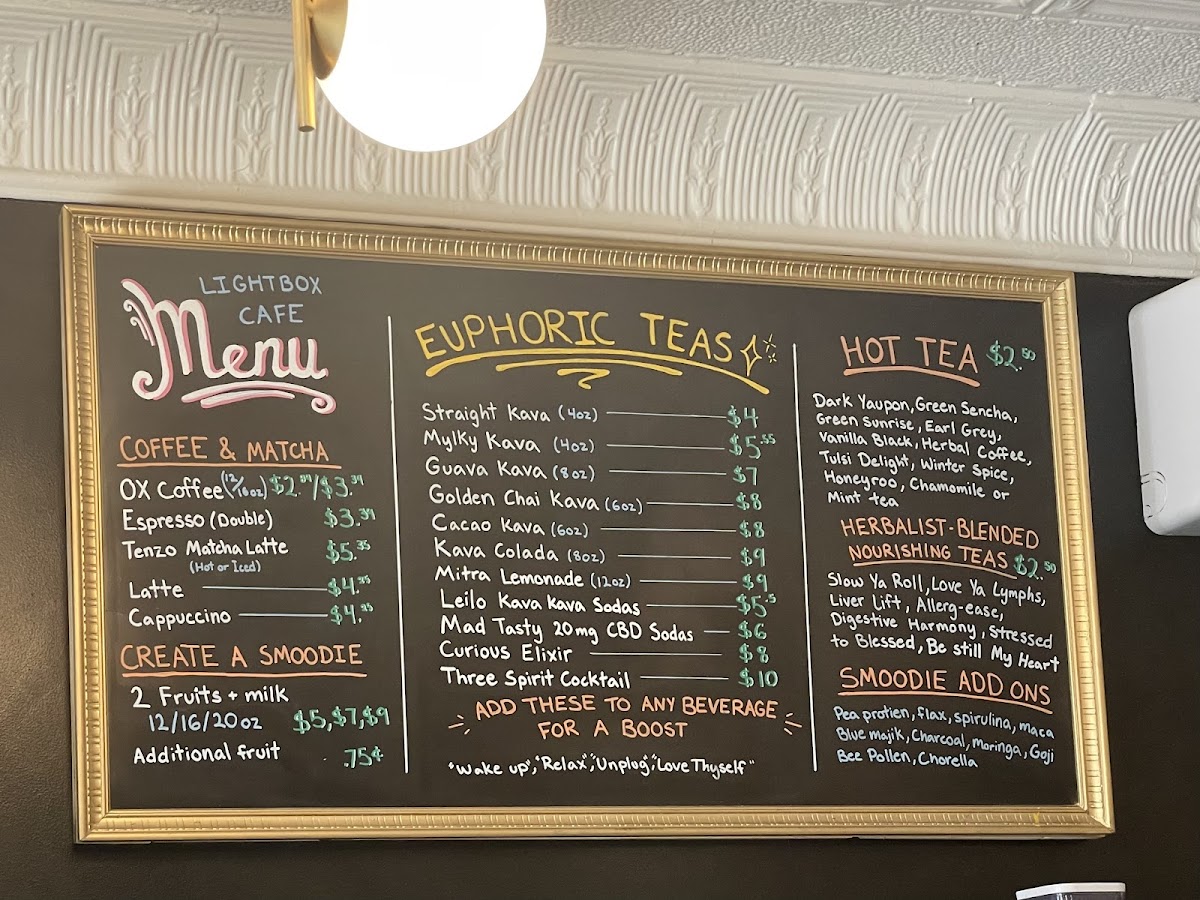 LIGHTBOX
CAFE
Menu
COFFEE & MATCHA
OX Coffee (12/16oz) $2.79/$3.39
Espresso (Double) $3.39
Tenzo Matcha Latte $5.35
(Hot or Iced)
Latte $4.25
Cappuccino $4.25
CREATE A SMOODIE
2 Fruits + milk
12/16/20oz $5,$7,$9
Additional fruit .75¢
EUPHORIC TEAS
Straight Kava (4oz) $4
Mylky Kava (4oz) $5.55
Guava Kava (8oz) $7
Golden Chai Kava (6oz) $8
Cacao Kava (6oz) $8
Kava Colada (8oz) $9
Mitra Lemonade (12oz) $9
Leilo Kava Kava Sodas $5.5
Mad Tasty 20mg CBD Sodas $6
Curious Elixir $8
Three Spirit Cocktail $10
ADD THESE TO ANY BEVERAGE
FOR A BOOST
"Wake up", "Relax", "Unplug", "Love Thyself"
HOT TEA $2.50
Dark Yaupon, Green Sencha,
Green Sunrise, Earl Grey,
Vanilla Black, Herbal Coffee,
Tulsi Delight, Winter Spice,
Honeyroo, Chamomile or
Mint tea
HERBALIST-BLENDED
NOURISHING TEAS $2.50
Slow Ya Roll, Love Ya Lymphs,
Liver Lift, Allerg-ease,
Digestive Harmony, Stressed
to Blessed, Be still My Heart
SMOODIE ADD ONS
Pea protien, flax, spirulina, maca
Blue majik, Charcoal, moringa, Goji
Bee Pollen, Chorella